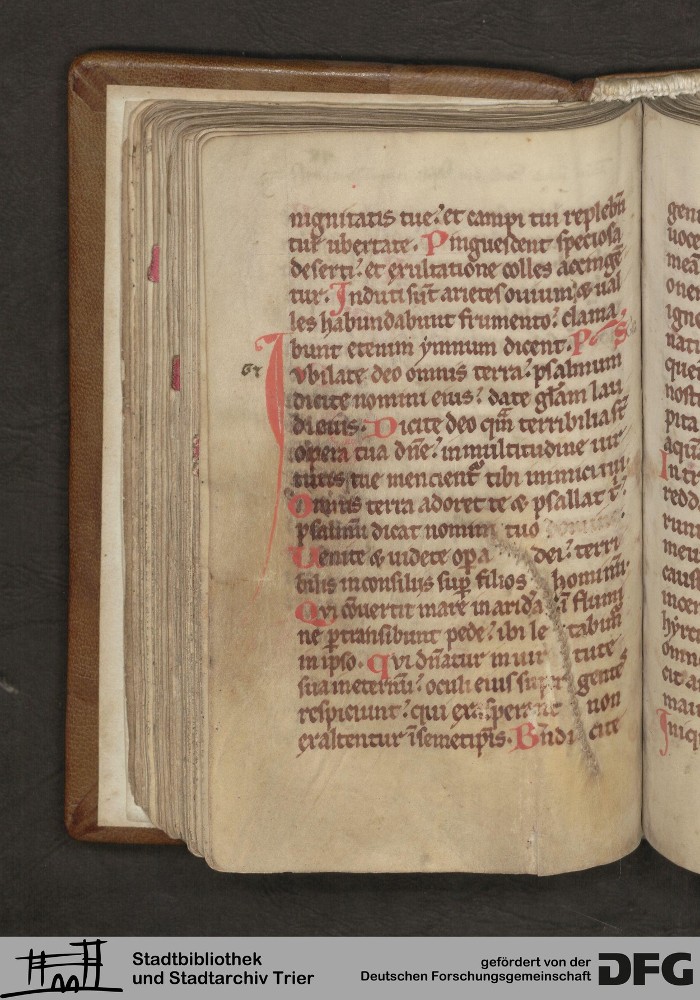 nignitatis tue. et campi tui replebn̄
tur ubertate. Pinguescent speciosa
deserti. et exultatione colles accingē
tur. Induti sūt arietes ovium. & val
les habundabunt frumento. clama
bunt etenim ymnum dicent. P̄s
Iubilate deo omnis terra. psalmum
dicite nomini eius. date glām lau
di eius. Dicite deo qm̄ terribilia st̄
opera tua dn̄e. in multitudine uir
tutis tue mencient᷑ tibi inimici tui
Omnis terra adoret te & psallat t̄.
psalmū dicat nomini tuo
Uenite & uidete op̄a dei. terri
bilis in consiliis sup̄ filios hominū.
Qui cōuertit mare in aridā ī flumi
ne p̄transibunt pede. ibi letabim᷑
in ipso. qui dn̄atur in uirtute
sua in eternū. oculi eius super gentes
respiciunt. qui exasperant non
exaltentur ī semetip̄is. Bn̄dicite
Stadtbibliothek
und Stadtarchiv Trier
gefördert von der
Deutschen Forschungsgemeinschaft
DFG